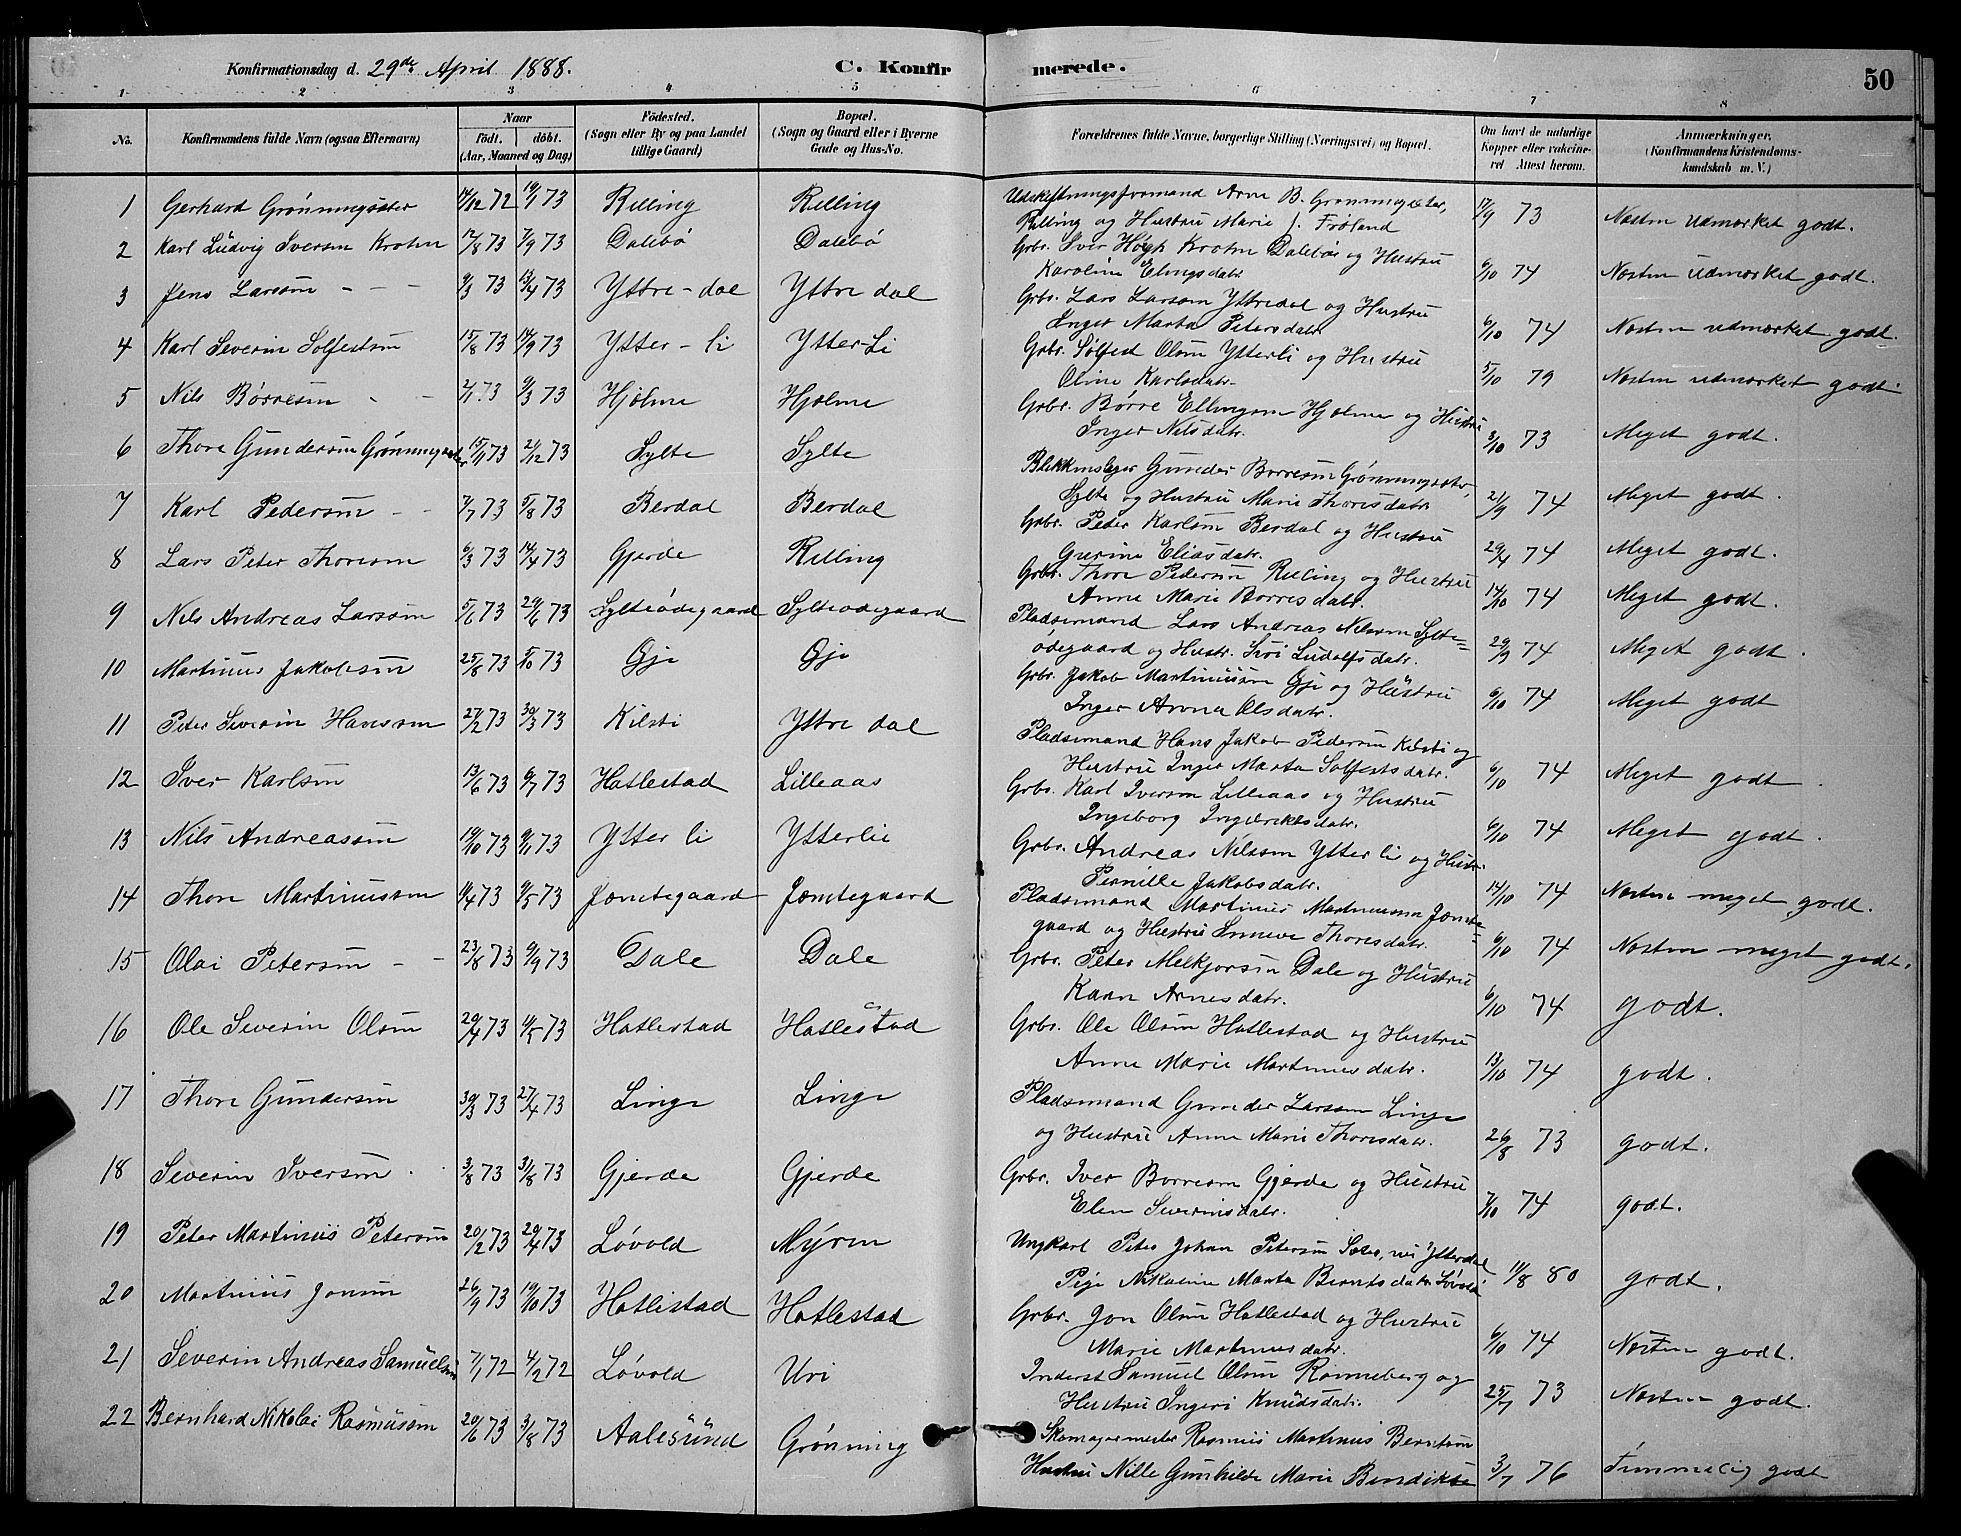 Konfirmationsdag d. 29de April 1888. C. Konfirmerede. 50
1 2 3 4 5 6 7 8
No. Konfirmandens fulde Navn (ogsaa Efternavn) Naar født. døbt. (Aar, Maaned og Dag) Födested. (Sogn eller By og paa Landet tillige Gaard) Bopæl. (Sogn og Gaard eller i Byerne Gade og Hus-No. Forældrenes fulde Navne, borgerlige Stilling (Næringsvei) og Bopæl. Om havt de naturlige Kopper eller vakcineret Attest herom. Anmærkninger. (Konfirmandens Kristendomskundskab m. V.)
1 Gerhard Grönningsæter 14/12 72 19/1 73 Relling Relling Udskiftningsformand Arne B. Grönningsæter,
Relling og Hustru Marie J. Fröland 17/9 73 Næsten udmærket godt.
2 Karl Ludvig Iversen Krohn 17/8 73 7/9 73 Dalebö Dalebö Grbr. Iver Høgh Krohn Dalebö og Hustru
Karoline Elingsdatr. 6/10 74 Næsten udmærket godt.
3 Jens Larsen - - - 9/3 73 13/4 73 Yttre-dal Yttre dal Grbr. Lars Larsen Yttredal og Hustru
Inger Marta Petersdatr. 6/10 74 Næsten udmærket godt.
4 Karl Severin Solfestsen 15/8 73 14/9 73 Ytter-li Ytter-Li Grbr. Solfest Olsen Ytterli og Hustru
Oline Karlsdatr. 5/10 79 Næsten udmærket godt.
5 Nils Børresen - - 2/1 73 9/3 73 Hjelme Hjelme Grbr. Børre Ellingsen Hjelme og Hustru
Inger Nilsdatr. 3/10 73 Meget godt.
6 Thore Gundersen Grønningsæter 15/11 73 21/12 73 Sylte Sylte Blikkenslager Gunder Børresen Grønningsæter,
Sylte og Hustru Marie Thoresdatr. 21/9 74 Meget godt.
7 Karl Pedersen - - 7/7 73 5/8 73 Berdal Berdal Grbr. Peder Karlsen Berdal og Hustru
Gurine Eliasdatr. 29/4 74 Meget godt.
8 Lars Peter Thoresen 6/3 73 14/4 73 Gjerde Relling Grbr. Thore Pedersen Relling og Hustru
Anne Marie Børresdatr. 14/10 74 Meget godt.
9 Nils Andreas Larsen 5/6 73 29/6 73 Sylteödegaard Sylteödegaard Pladsemand Lars Andreas Nilsen Sylte=
ödegaard og Hustr. Siri Ludolfsdatr. 29/9 74 Meget godt.
10 Martinus Jakobsen 25/8 73 5/10 73 Öje Öje Grbr. Jakob Martinussen Öje og Hustru
Inger Anna Olsdatr. 6/10 74 Meget godt
11 Peter Severin Hanssen 27/2 73 30/3 73 Kilsti Yttre dal Pladsemand Hans Jakob Pedersen Kilsti og
Hustru Inger Marta Solfestsdatr. 6/10 74 Meget godt.
12 Iver Karlsen 13/6 73 6/7 73 Hatlestad Lilleaas Grbr. Karl Iversen Lilleaas og Hustru
Ingeborg Ingebriktsdatr. 6/10 74 Meget godt.
13 Nils Andreassen 19/10 73 9/11 73 Ytter li Ytterlie Grbr. Andreas Nilssen Ytter li og Hustr.
Pernille Jakobsdatr. 14/10 74 Næsten meget godt.
14 Thore Martinussen 11/4 73 11/5 73 Jemtegaard Jemtegaard Pladsemand Martinus Martinussen Jemte=
gaard og Hustru Synneve Thoresdatr. 6/10 74 Næsten meget godt.
15 Olai Petersen - - 23/8 73 9/9 73 Dale Dale Grbr. Peter Melkjorsen Dale og Hustru
Karen Arnesdatr. 6/10 74 godt.
16 Ole Severin Olsen 20/4 73 11/5 73 Hatlestad Hatlestad Grbr. Ole Olsen Hatlestad og Hustru
Anne Marie Martinusdatr. 13/10 74 godt.
17 Thore Gundersen 30/3 73 27/4 73 Linge Linge Pladsemand Gunder Larsen Linge
og Hustru Anne Marie Thoresdatr. 26/8 73 godt.
18 Severin Iversen 3/8 73 31/8 73 Gjerde Gjerde Grbr. Iver Børresen Gjerde og Hustru
Elen Severinsdatr. 7/10 74 godt.
19 Peter Martinus Petersen 20/2 73 20/4 73 Lövold Myren Ungkarl Peter Johan Petersen, nu Ytterdal
Pige Nikoline Marta Berntsdatr. Lövold 11/8 80 godt.
20 Martinus Jonsen 26/9 73 19/10 73 Hatlestad Hatlestad Grbr. Jon Olsen Hatlestad og Hustru
Marie Martinusdatr. 6/10 74 Næsten godt.
21 Severin Andreas Samuelsen 7/1 72 4/2 72 Lövold Uri Inderst Samuel Olsen Rønneberg og
Hustru Ingeri Knudsdatr. 25/7 73 Næsten godt.
22 Bernhard Nikolai Rasmussen 20/6 73 3/8 73 Aalesund Grönning Skomagermester Rasmus Martinus Berntsen
Hustru Nille Gunhilde Marie 3/7 76 Temmelig godt